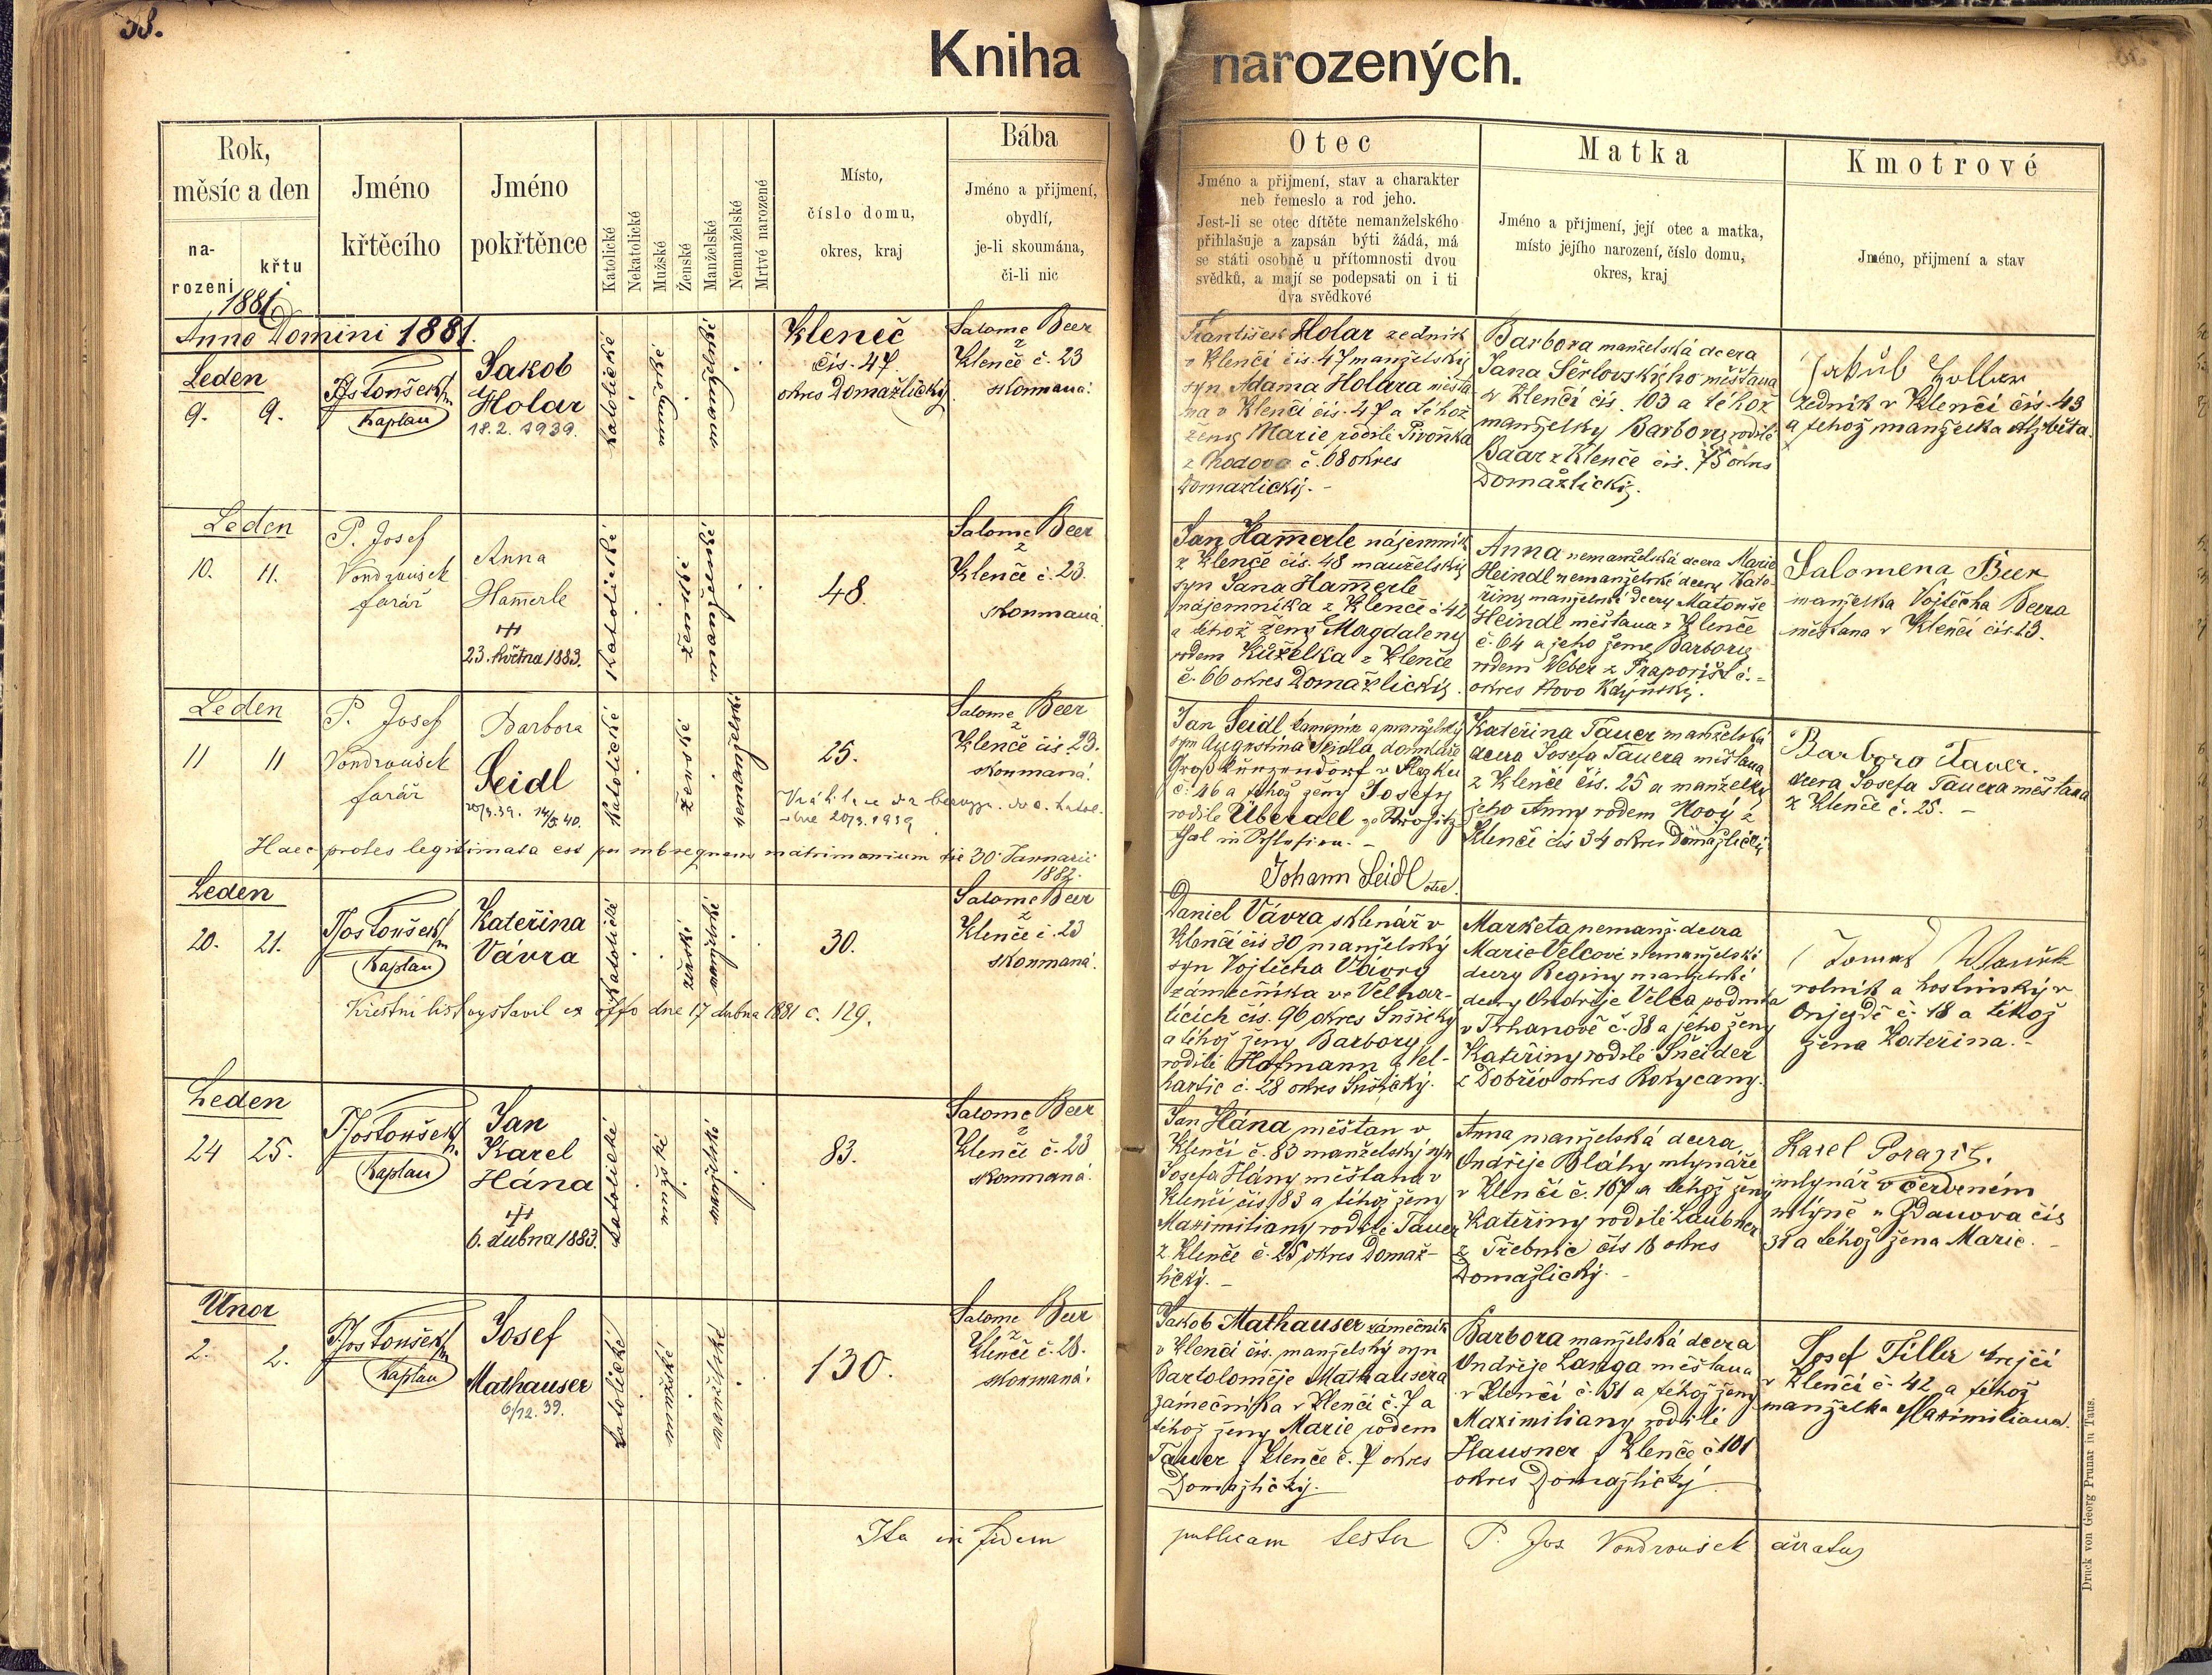 38.
Kniha narozených.
Rok,
měsíc a den
na-
rozeni
křtu
1881
Jméno
křtěcího
Jméno
pokřtěnce
Katolické
Nekatolické
Mužské
Ženské
Manželské
Nemanželské
Mrtvé narozené
Místo,
číslo domu,
okres, kraj
Bába
Jméno a přijmení,
obydlí,
je-li skoumána,
či-li nic
Otec
Jméno a přijmení, stav a charakter
neb řemeslo a rod jeho.
Jest-li se otec dítěte nemanželského
přihlašuje a zapsán býti žádá, má
se státi osobně u přítomnosti dvou
svědků, a mají se podepsati on i ti
dva svědkové
Matka
Jméno a přijmení, její otec a matka,
místo jejího narození, číslo domu,
okres, kraj
Kmotrové
Jméno, přijmení a stav
Anno Domini 1881.
Leden
9. 9.
Kaplan
Jakob
Holar
18.2.1939.
katolické
mužské
manželské
Kleneč
čís. 47.
okres Domažlický
Salome Beer
z
Klenče č. 23
skoumaná.
František Holar zedník
v Klenči čís. 47 manželský
syn Adama Holara měšťa
na v Klenčí čís. 47 a téhož
ženy Marie rodilé Pivoňka
z Chodova č. 68 okres
Domažlický. -
Barbora manželská dcera
Jana Šerlovského měšťana
v Klenčí čís. 103 a téhož
manželky Barbory rodilé
Baar z Klenče čís. 75 okres
Domažlický.
Jakub Hollar
zedník v Klenčí čís. 43
a téhož manželka Alžběta.
Leden
10. 11.
P. Josef
Vondroušek
farář
Anna
Hamerle
23. května 1883.
Katolické
ženské
manželské
48.
Salome Beer
z
Klenče č. 23.
skoumaná.
Jan Hamerle nájemník
z Klenče čís. 48 manželský
syn Jana Hamerle
nájemníka z Klenče č. 42
a téhož ženy Magdaleny
rodem Kuželka z Klenče
č. 66 okres Domažlický.
Anna nemanželská dcera Marie
Heindl nemanželské dcery Kate-
řiny manželské dcery Matouše
Heindl měšťana z Klenče
č. 64 a jeho ženy Barbory
rodem Veber z Prapořišt č. -
okres Novo Kdýnský.
Salomena Beer
manželka Vojtěcha Beera
měšťana v Klenčí čís 13.
Leden
11 11
P. Josef
Vondroušek
farář
Barbora
Seidl
20/3.39. 14/5.40.
Katolické
ženské
nemanželské
25.
Salome Beer
z
Klenče čís 23.
skoumaná.
dne 20/3.1939
Haec proles legitimata est per subsequens matrimonium die 30 Januarii
1882.
Jan Seidl kameník a manželský
syn Augustina Seidla domkáře
Groß Kunzendorf v Slezku
č. 46 a téhož ženy Josefy
rodilé Überall
Johann Seidl otec.
Kateřina Tauer manželská
dcera Josefa Tauera měšťana
z Klenče čís. 25 a manželky
jeho Anny rodem Nový z
Klenčí čís 34 okres Domažlický
Barbora Tauer.
dcera Josefa Tauera měšťana
z Klenče č. 25. -
Leden
20. 21.
Kaplan
Kateřina
Vávra
Katolické
ženské
manželské
30.
Salome Beer
z
Klenče č. 23
skoumaná.
Křestní list vystavil ex offo dne 17 dubna 1881 č. 129.
Daniel Vávra sklenář v
Klenčí čís 30 manželský
syn Vojtěcha Vávry
zámečníka ve Velhar-
ticích čís. 96 okres Sušický
a téhož ženy Barbory
rodilé Hofmann z Vel-
hartic č. 28 okres Sušický.
Marketa nemanž. dcera
Marie Velcové nemanželské
dcery Reginy manželské
dcery Ondřeje Velca
v Trhanově č. 38 a jeho ženy
Kateřiny rodilé Šneider
z Dobřív okres Rokycany.
rolník a hostinský v
č. 18 a téhož
žena Kateřina. -
Leden
24 25.
Kaplan
Jan
Karel
Hána
6. dubna 1883.
Katolické
mužské
manželské
83.
Salome Beer
z
Klenče č. 23
skoumaná.
Jan Hána měšťan v
Klenčí č. 83 manželský syn
Josefa Hány měšťana v
Klenčí čís 83 a téhož ženy
Maximiliany rodilé Tauer
z Klenče č. 25 okres Domaž-
lický. -
Anna manželská dcera
Ondřeje Bláhy mlynáře
v Klenčí č. 167 a téhož ženy
Kateřiny rodilé Laubner
z Třebnic čís 18 okres
Domažlický. -
Karel
mlynář v červeném
mlýně u Ždanova čís
31 a téhož žena Marie. -
Unor
2. 2.
Kaplan
Josef
Mathauser
6/12.39.
katolické
mužské
manželské
130.
Salome Beer
z
Klenče č. 23.
skoumaná.
Jakob Mathauser zámečník
v Klenčí čís. manželský syn
Bartoloměje Mathausera
zámečníka v Klenčí č. 7 a
téhož ženy Marie rodem
Tauer z Klenče č. 7 okres
Domažlický. -
Barbora manželská dcera
Ondřeje Langa měšťana
v Klenčí č. 31 a téhož ženy
Maximiliany rodilé
Hausner z Klenče č 101
okres Domažlický
Josef Tiller krejčí
v Klenčí č. 42 a téhož
manželka Maximiliana.
Ita in fidem publicam testor P. Jos Vondroušek
Druck von Georg Prunar in Taus.